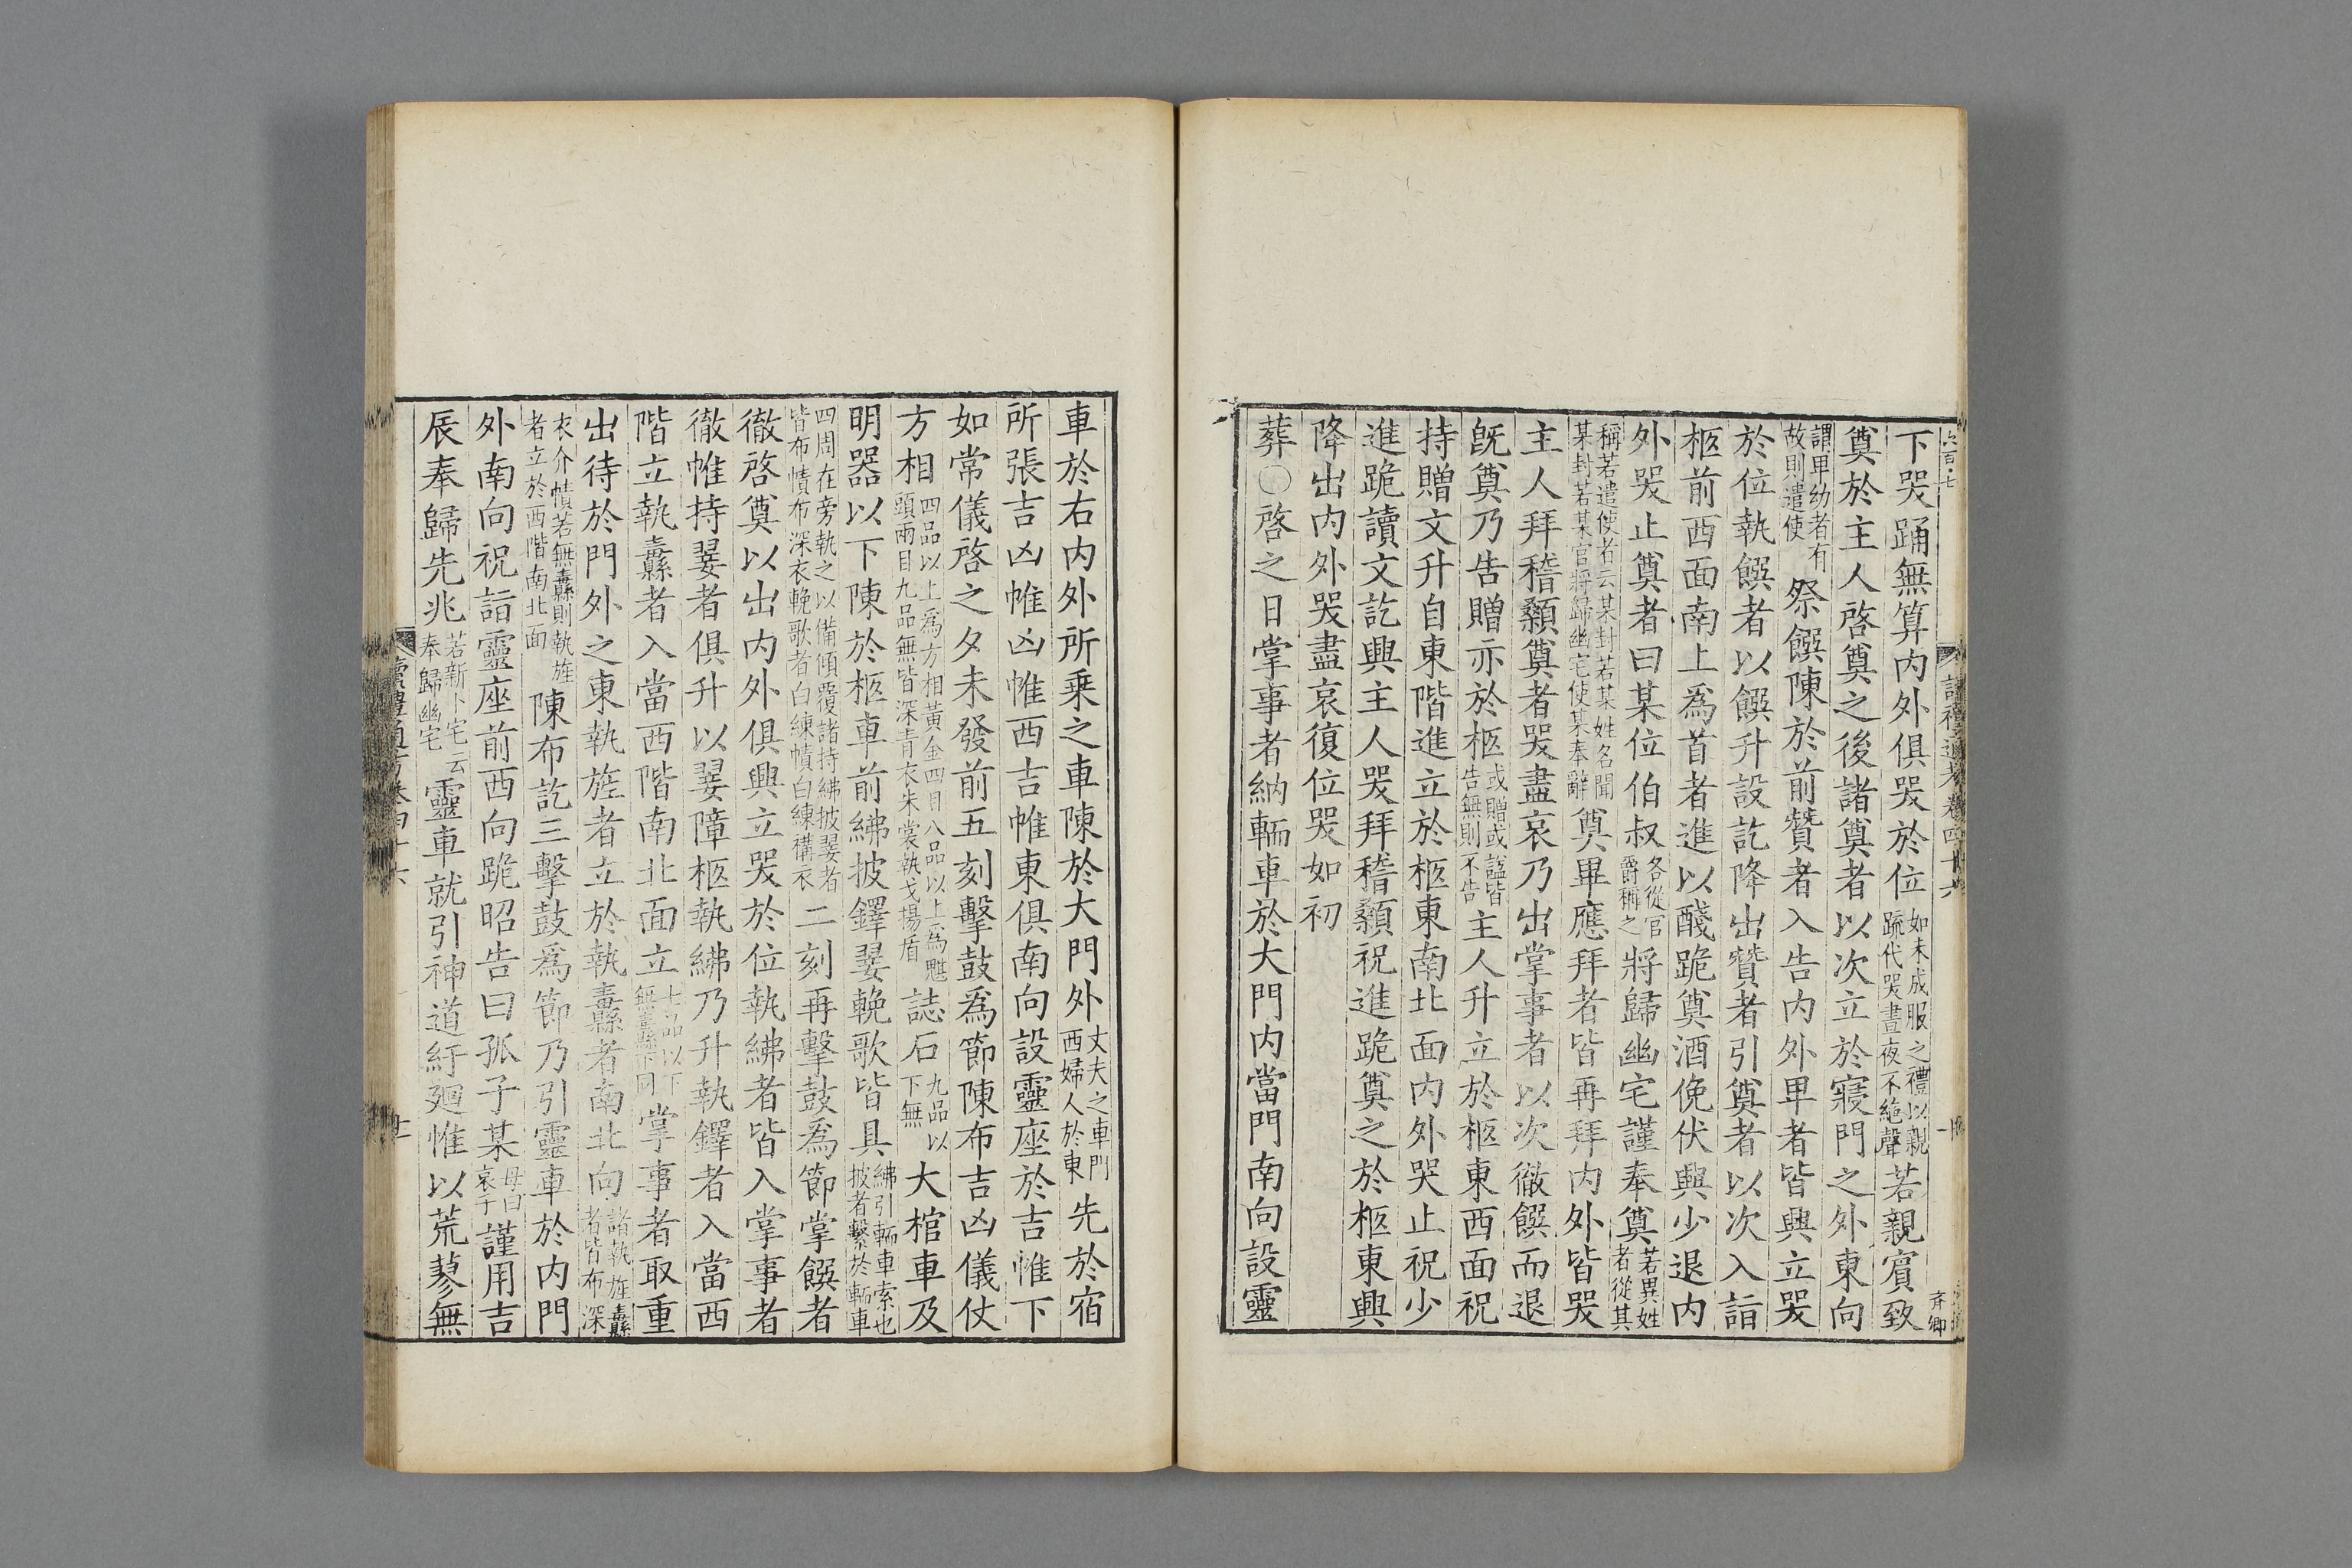 下哭踊無算内外俱哭於位如未成服之禮以親疏代哭晝夜不絶聲若親賓致
奠於主人啓奠之後諸奠者以次立於寢門之外東向
謂卑幼者有故則遣使祭饌陳於前贊者入告内外卑者皆興立哭
於位執饌者以饌升設訖降出贊者引奠者以次入詣
柩前西面南上爲首者進以醆跪奠酒俛伏興少退内
外哭止奠者曰某位伯叔各從官爵稱之將歸幽宅謹奉奠若異姓者從其
稱若遣使者云某封若某姓名聞某封若某官將歸幽宅使某奉辭奠畢應拜者皆再拜内外皆哭
主人拜稽顙奠者哭盡哀乃出掌事者以次徹饌而退
旣奠乃告贈亦於柩或贈或謚皆告無則不告主人升立於柩東西面祝
持贈文升自東階進立於柩東南北面内外哭止祝少
進跪讀文訖興主人哭拜稽顙祝進跪奠之於柩東興
降出内外哭盡哀復位哭如初
葬○啓之日掌事者納輀車於大門内當門南向設靈
車於右内外所乗之車陳於大門外丈夫之車門西婦人於東先於宿
所張吉凶帷凶帷西吉帷東俱南向設靈座於吉帷下
如常儀啓之夕未發前五刻擊鼓爲節陳布吉凶儀仗
方相四品以上爲方相黃金四目八品以上爲魌頭兩目九品無皆深青衣朱裳執戈揚盾誌石九品以下無大棺車及
明器以下陳於柩車前紼披鐸翣輓歌皆具紼引輀車索也披者繫於輀車
四周在旁執之以備傾覆諸持紼披翣者皆布幘布深衣輓歌者白練幘白練褠衣二刻再擊鼓爲節掌饌者
徹啓奠以出内外俱興立哭於位執紼者皆入掌事者
徹帷持翣者俱升以翣障柩執紼乃升執鐸者入當西
階立執纛者入當西階南北面立七品以下無纛下同掌事者取重
出待於門外之東執旌者立於執纛者南北向諸執旌纛者皆布深
衣介幘若無纛則執旌者立於西階南北面陳布訖三擊鼓爲節乃引靈車於内門
外南向祝詣靈座前西向跪昭告曰孤子某母曰哀子謹用吉
辰奉歸先兆若新卜宅云奉歸幽宅靈車就引神道紆廻惟以荒蓼無